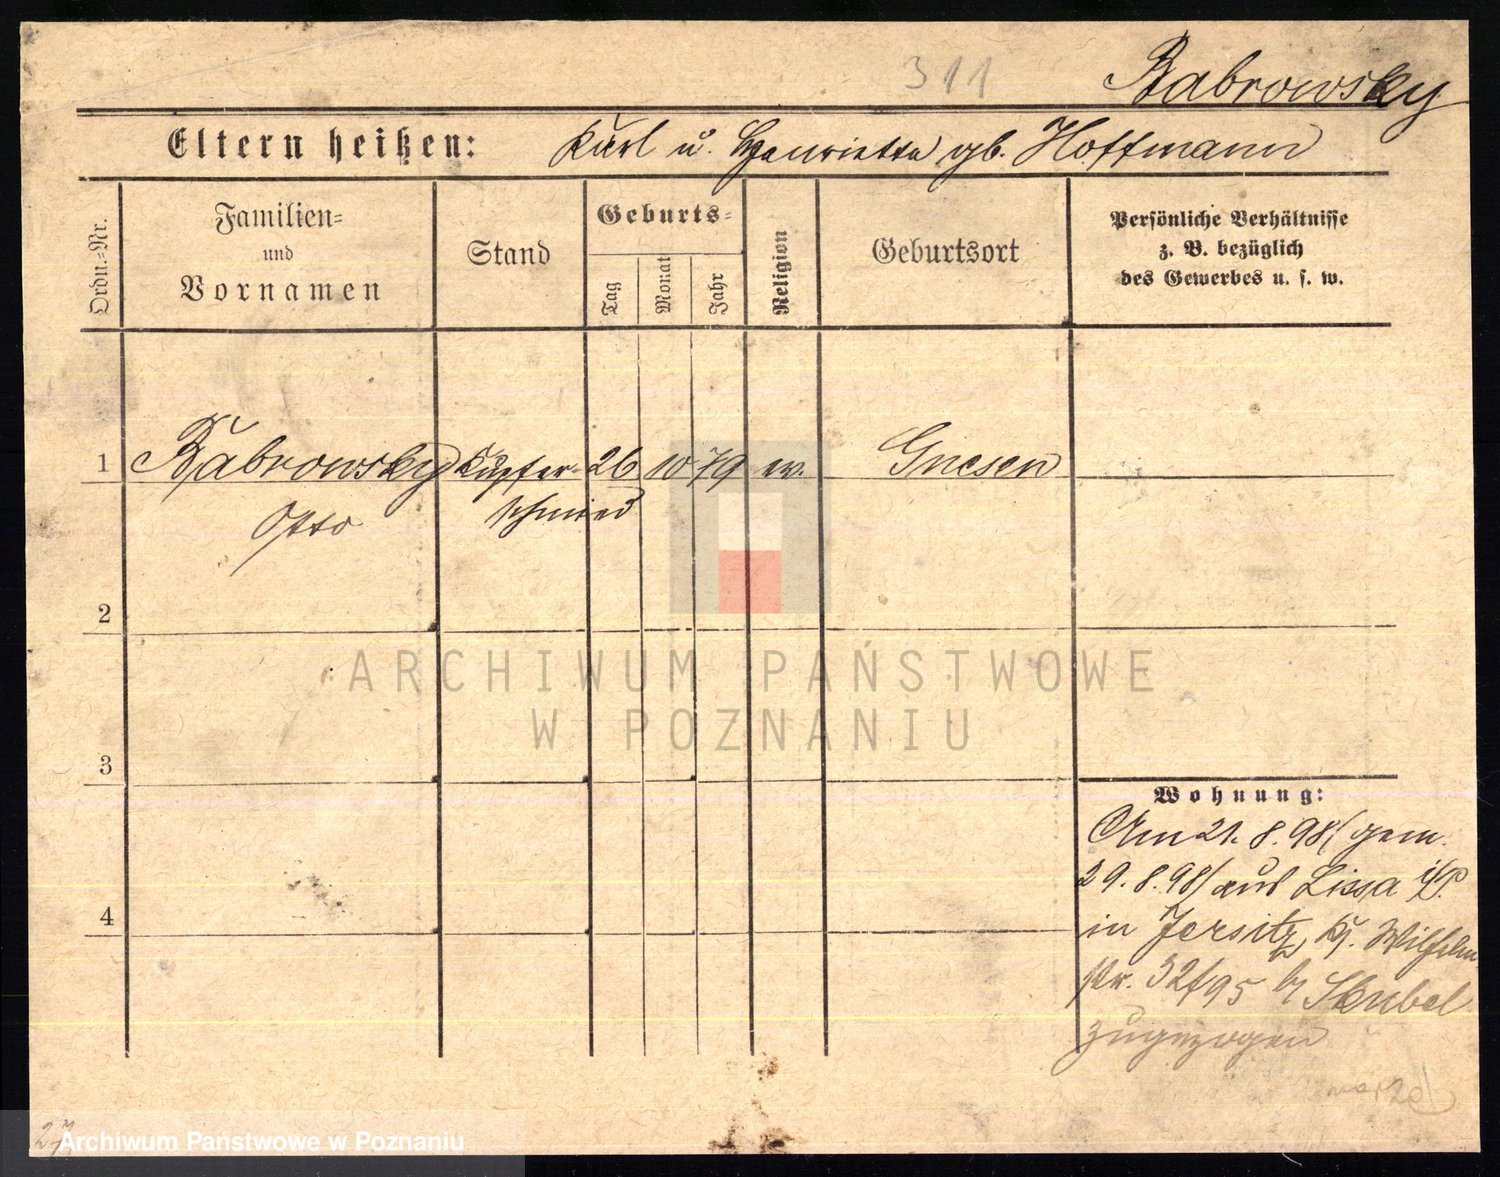 311
Babrowsky
Eltern heißen: Karl u. Henriette gb. Hoffmann
Ordn.-Nr.
Familien-
und
Vornamen
Stand
Geburts-
Tag
Monat
Jahr
Religion
Geburtsort
Persönliche Verhältnisse
z. B. bezüglich
des Gewerbes u. s. w.
1 Babrowsky Kupfer- 26 10 79 ev. Gnesen
Otto schmied
2
ARCHIWUM PAŃSTWOWE
W POZNANIU
3
Wohnung:
Am 21. 8. 98/ gem.
29. 8. 98/ aus Lissa i/P.
4
in Jersitz, Ks. Wilhelm
str. 32/95 by Skubel
zugezogen
27
Archiwum Państwowe w Poznaniu